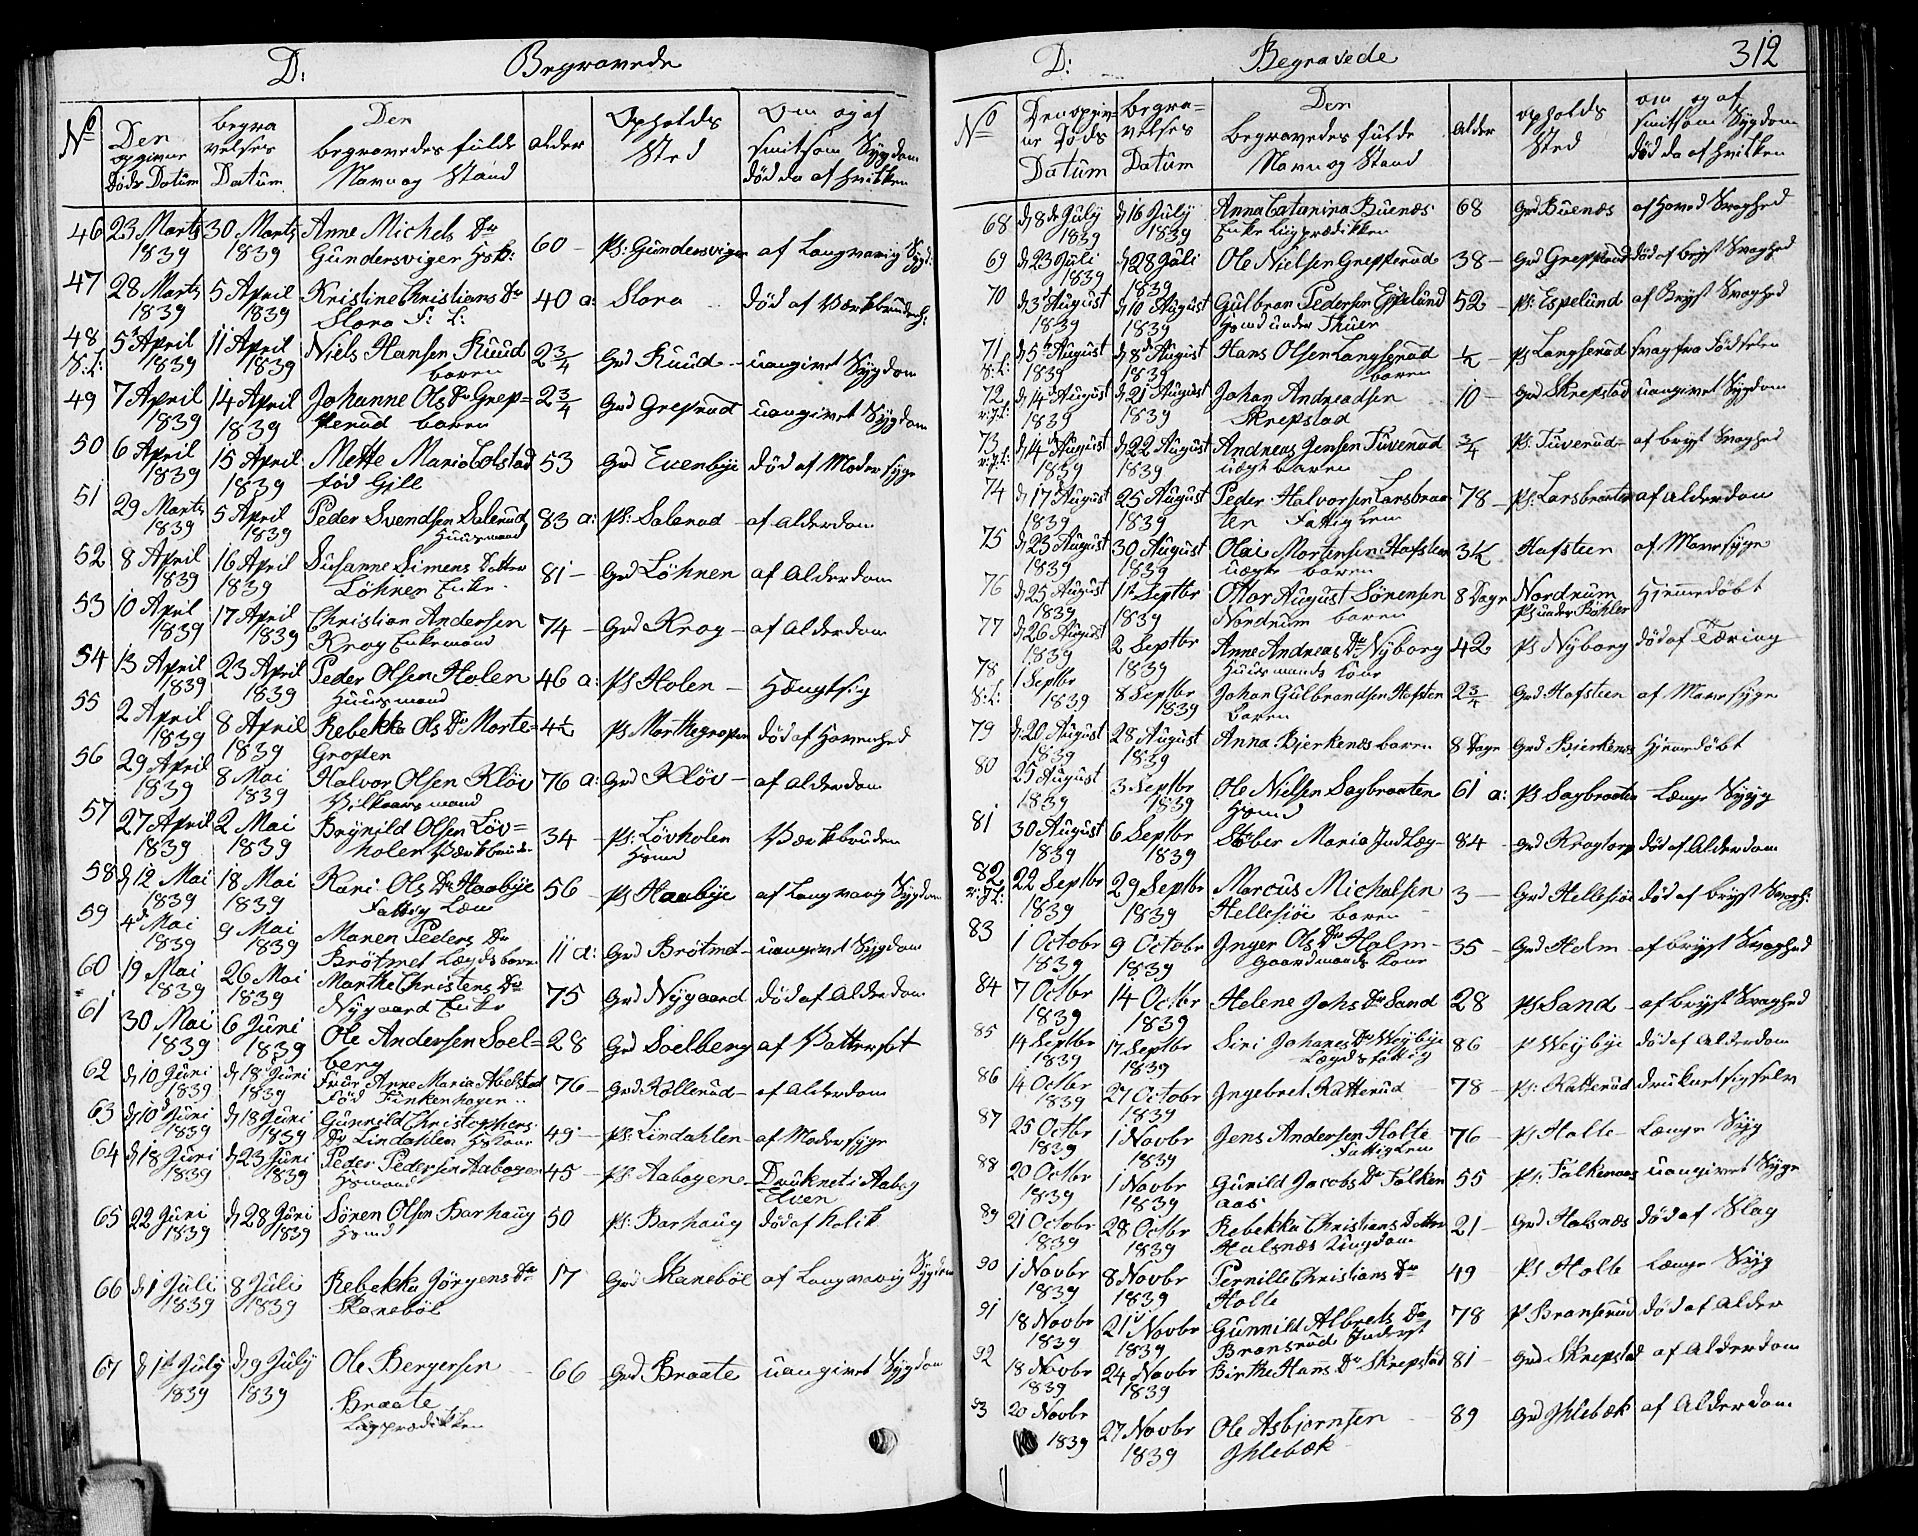 D: Begravede
No Den opgivne Døds Datum | begravelses Datum | Den begravedes fulde Navn og Stand | alder | Opholds Sted | Om og af smitsom Sygdom død da af hvilken
46 23 Marts 1839 30 Marts 1839 Anne Michels Dr Gundersviger 60 – Ps: Gundersviger af Langvarig Sygd:
47 28 Marts 1839 5 April 1839 Kristine Christians Dr Slora F: L: 40 a: Slora død af
48 5 April 1839 11 April 1839 Niels Hansen Ruud baren 2 3/4 Grd Ruud – uangivet Sygdom
49 7 April 1839 14 April 1839 Johanne Ols Dr Grepperud baren 2 3/4 Grd Greprud uangivet Sygdom
50 6 April 1839 15 April 1839 Mette Maria Colstad fød Gill 53 Grd Evenbye død af Moder syge
51 29 Marts 1839 5 April 1839 Peder Svendsen Salerud Huusmand 83 a: Ps: Salerud – af Alderdom
52 8 April 1839 16 April 1839 Susanne Simens Datter Löhnen Enke 81 – Grd Löhnen af Alderdom
53 10 April 1839 17 April 1839 Christian Andersen Krog Enkemand 74 – Grd Krog – af Alderdom
54 13 April 1839 23 April 1839 Peder Olsen Holen Huusmand 46 a: Ps Holen – Hængt sig
55 2 April 1839 8 April 1839 Rebekka Ols Dr Mortegropen 4 1/2 Ps Morthegropen død af
56 29 April 1839 8 Mai 1839 Halvor Olsen Kløv 76 a: Grd Kløv – af Alderdom
57 27 April 1839 2 Mai 1839 Brynild Olsen Løvholen 34 – Ps: Løvholen
58 d 12 Mai 1839 18 Mai 1839 Kari Ols Dr Haabye Fattig Lem 56 – Ps Haabye af Langvarig Sygdom
59 4 Mai 1839 9 Mai 1839 Maren Peders Dr Brötmet Lægdsbarn 11 a: Grd Brötmet – uangivet Sygdom
60 19 Mai 1839 26 Mai 1839 Marthe Christens Dr Nygaard Enke 75 Grd Nygaard død af Alderdom
61 30 Mai 1839 6 Juni 1839 Ole Andersen Soelberg 28 Grd Soelberg af Vattersot
62 d 10 Juni 1839 d 18 Juni 1839 Frue Anne Maria Abelsted Fød Finkenhagen 76 – Grd Kollerud – af Alderdom
63 d 10 Juni 1839 d 18 Juni 1839 Gunnild Christophers Dr Lindahlen 49 – Ps: Lindahlen – af Moder syge
64 d 18 Juni 1839 d 23 Juni 1839 Peder Pedersen Aabogen Hsmand 45 – Ps Aabogene – Druknet i Aabog Elven
65 22 Juni 1839 d 28 Juni 1839 Sören Olsen Barhaug 50 Ps: Barhaug død af Kolik
66 d 1 Juli 1839 8 Juli 1839 Rebekka Jörgens Dr Skaneböl 17 Grd Skaneböl af Langvarig Sygdom
67 d 1st July 1839 d 9 July 1839 Ole Bergersen Braate Ligprædikken 66 Grd Braate uangivet Sygdom
D: Begravede 312
No Den opgivne Døds Datum | begravelses Datum | Den begravedes fulde Navn og Stand | Alder | opholds Sted | om og af smitsom Sygdom død da af hvilken
68 d 8de July 1839 d 16 July 1839 Anna Catarina Buenæs Enke Ligprædikken 68 Grd Buenæs af Hoved Svaghed
69 d 23 Juli 1839 d 28 Juli 1839 Ole Nielsen Grepperud 38 – Grd Grepperud død af bryst Svaghed
70 d 3 August 1839 d 10 August 1839 Gulbran Pedersen Espelund 52 – Ps: Espelund af Bryst Svaghed
71 d 5 August 1839 d 8 August 1839 Hans Olsen Langserud baren 1/2 – Ps Langserud svag fra Fødselen
72 d 14 August 1839 d 21 August 1839 Johan Andreadsen Skrepstad 10 – Grd Skrepstad uangivet Sygdom
73 d 14 August 1839 d 22 August 1839 Andreas Jensen Tuverud uægte baren 3/4 Ps: Tuverud – af bryst Svaghed
74 d 17 August 1839 25 August 1839 Peder Halvorsen Larsbraaten Fattiglem 78 – Ps: Larsbraaten af Alderdom
75 d 23 August 1839 30 August 1839 Olai Mortensen Hafsten uægte baren 3 1/2 Hafsteen af Mavesyge
76 d 25 August 1839 1st Septbr 1839 Ottor August Sörensen Nordrum baren 8 Dage Nordrum Ps under Böhler Hiemmedöbt
77 d 26 August 1839 2 Septbr 1839 Anne Andreas Dr Nyborg Huusmands Kone 42 Ps Nyborg død af Tæring
78 1 Septbr 1839 8 Septbr 1839 Johan Gulbrandsen Hafsten Baren 2 3/4 Grd Hafsteen af Mavesyge
79 d 20 August 1839 28 August 1839 Anna Bjerkenæs baren 8 Dage Grd Bierkenæs Hiemedöbt
80 25 August 1839 3 Septbr 1839 Ole Nielsen Sagbraaten 61 a: Ps Sagbraaten Længe Syg
81 30 August 1839 6 Septbr 1839 Maria Indlæg 84 – Grd Krogtorp død af Alderdom
82 22 Septbr 1839 29 Septbr 1839 Marcus Michalsen Hellesiöe baren 3 – Grd Hellesiöe død af bryst Svagh:
83 1 Octobr 1839 9 Octobr 1839 Inger Ols Dr Holm – Gaardmands Kone 35 – Grd Holm – af bryst Svaghed
84 7 Octbr 1839 14 Octbr 1839 Helene Johs Dr Sand 28 Ps Sand – af bryst Svaghed
85 14 Septbr 1839 17 Septbr 1839 Siri Johanes Dr Weybye Lægdsfattig 86 P Weybye død af Alderdom
86 4 Octbr 1839 27 Octobr 1839 Ingebret Katterud 78 – Ps: Katterud druknet sig selv
87 25 Octbr 1839 1 Novbr 1839 Jens Andersen Holte Fattiglem 76 – Ps Holte – Længe Syg
88 20 Octbr 1839 1 Novbr 1839 Gunild Jacobs Dr Falkenaas 55 Ps: Falkenaas uangivet Syge
89 21 Octobr 1839 28 Octbr 1839 Rebekka Christians Datter Halsnæs Ungdom 21 – Grd Halsnæs død af Slag
90 1 Novbr 1839 8 Novbr 1839 Pernille Christians Dr Holte 49 Ps Holte Længe Syg
91 18 Novbr 1839 21 Novbr 1839 Gunnild Albrets Dr Bransrud Inderst 78 P Branserud død af Alder
92 18 Novbr 1839 24 Novbr 1839 Birthe Hans Dr Skrepstad 81 – Grd Skrepstad af Alderdom
93 20 Novbr 1839 27 Novbr 1839 Ole Asbjornsen Ihlebæk 89 Grd Ihlebæk af Alderdom